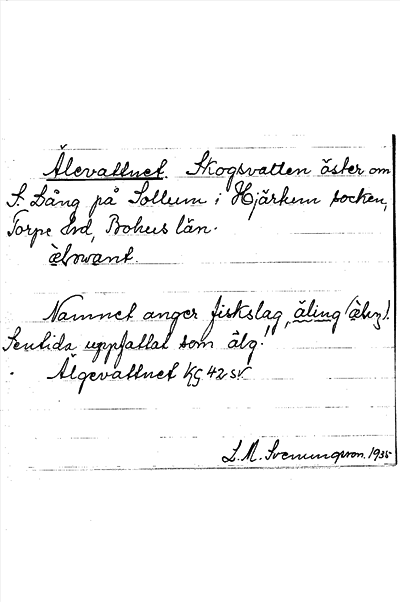 Älevattnet. Skogsvatten öster om
S. Lång på Sollum i Hjärtum socken,
Torpe hd, Bohus län.
Namnet anger fiskslag, äling
Sentida uppfattat som älg.
Älgevattnet KG 42 SV
L. M. Svenungsson. 1935